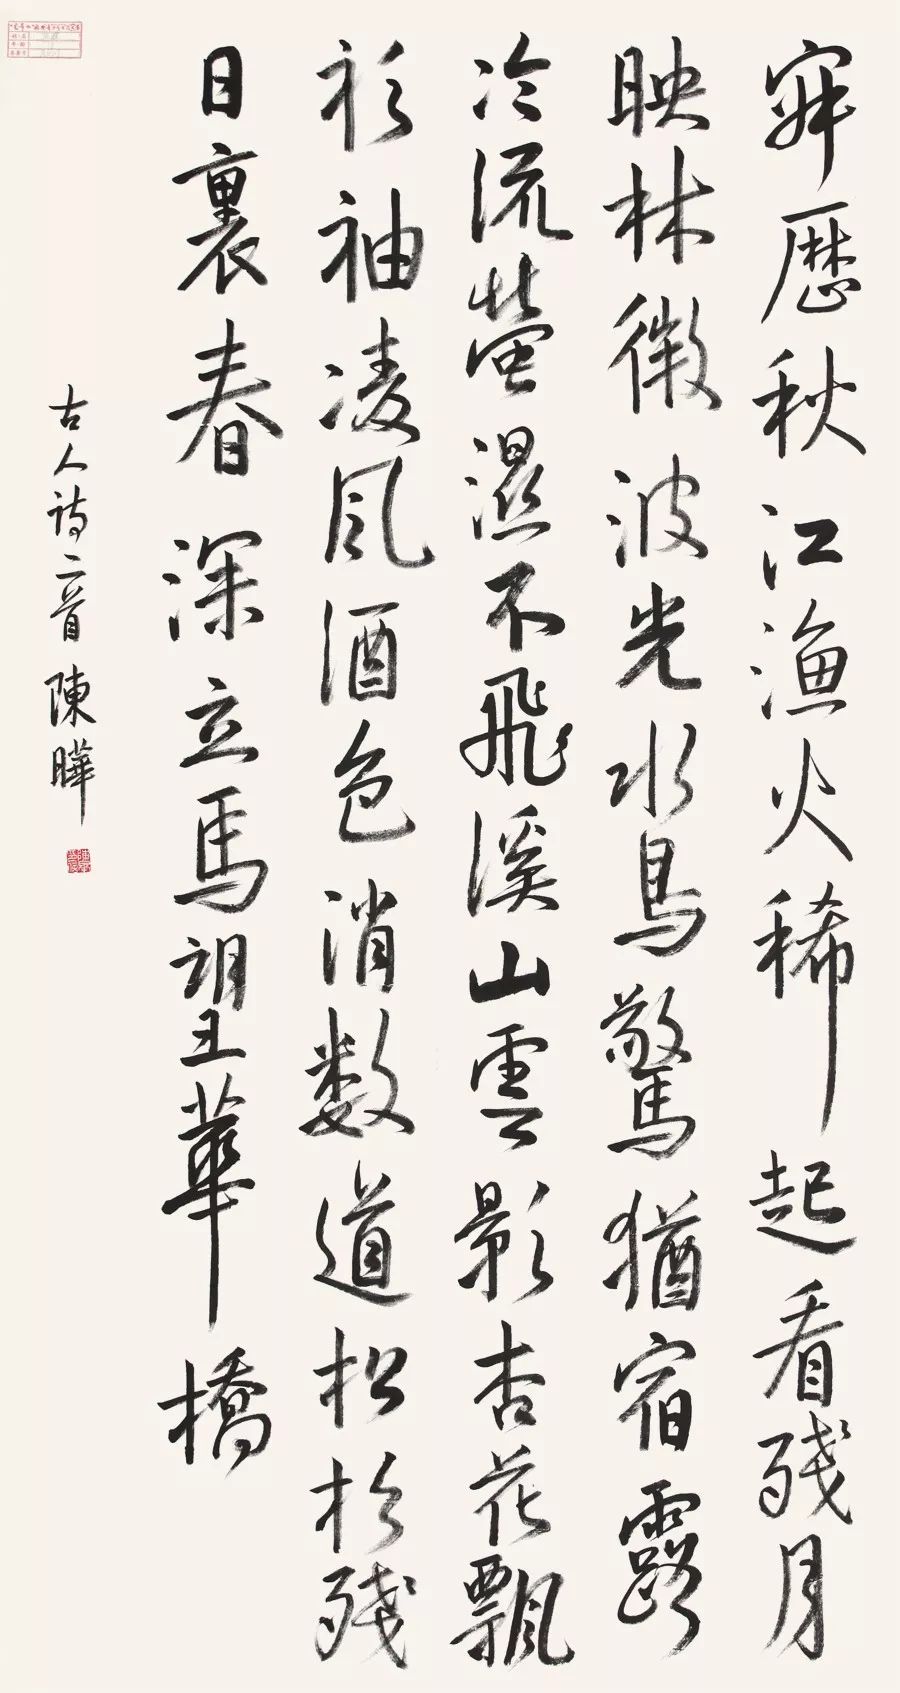 寂歷秋江漁火稀起看殘月
映林微波光水鳥驚猶宿露
冷流螢濕不飛溪山雲影杏花飄
衫袖凌風酒色消数道松杉殘
日裏春深立馬望華橋
古人詩二首 陳曄